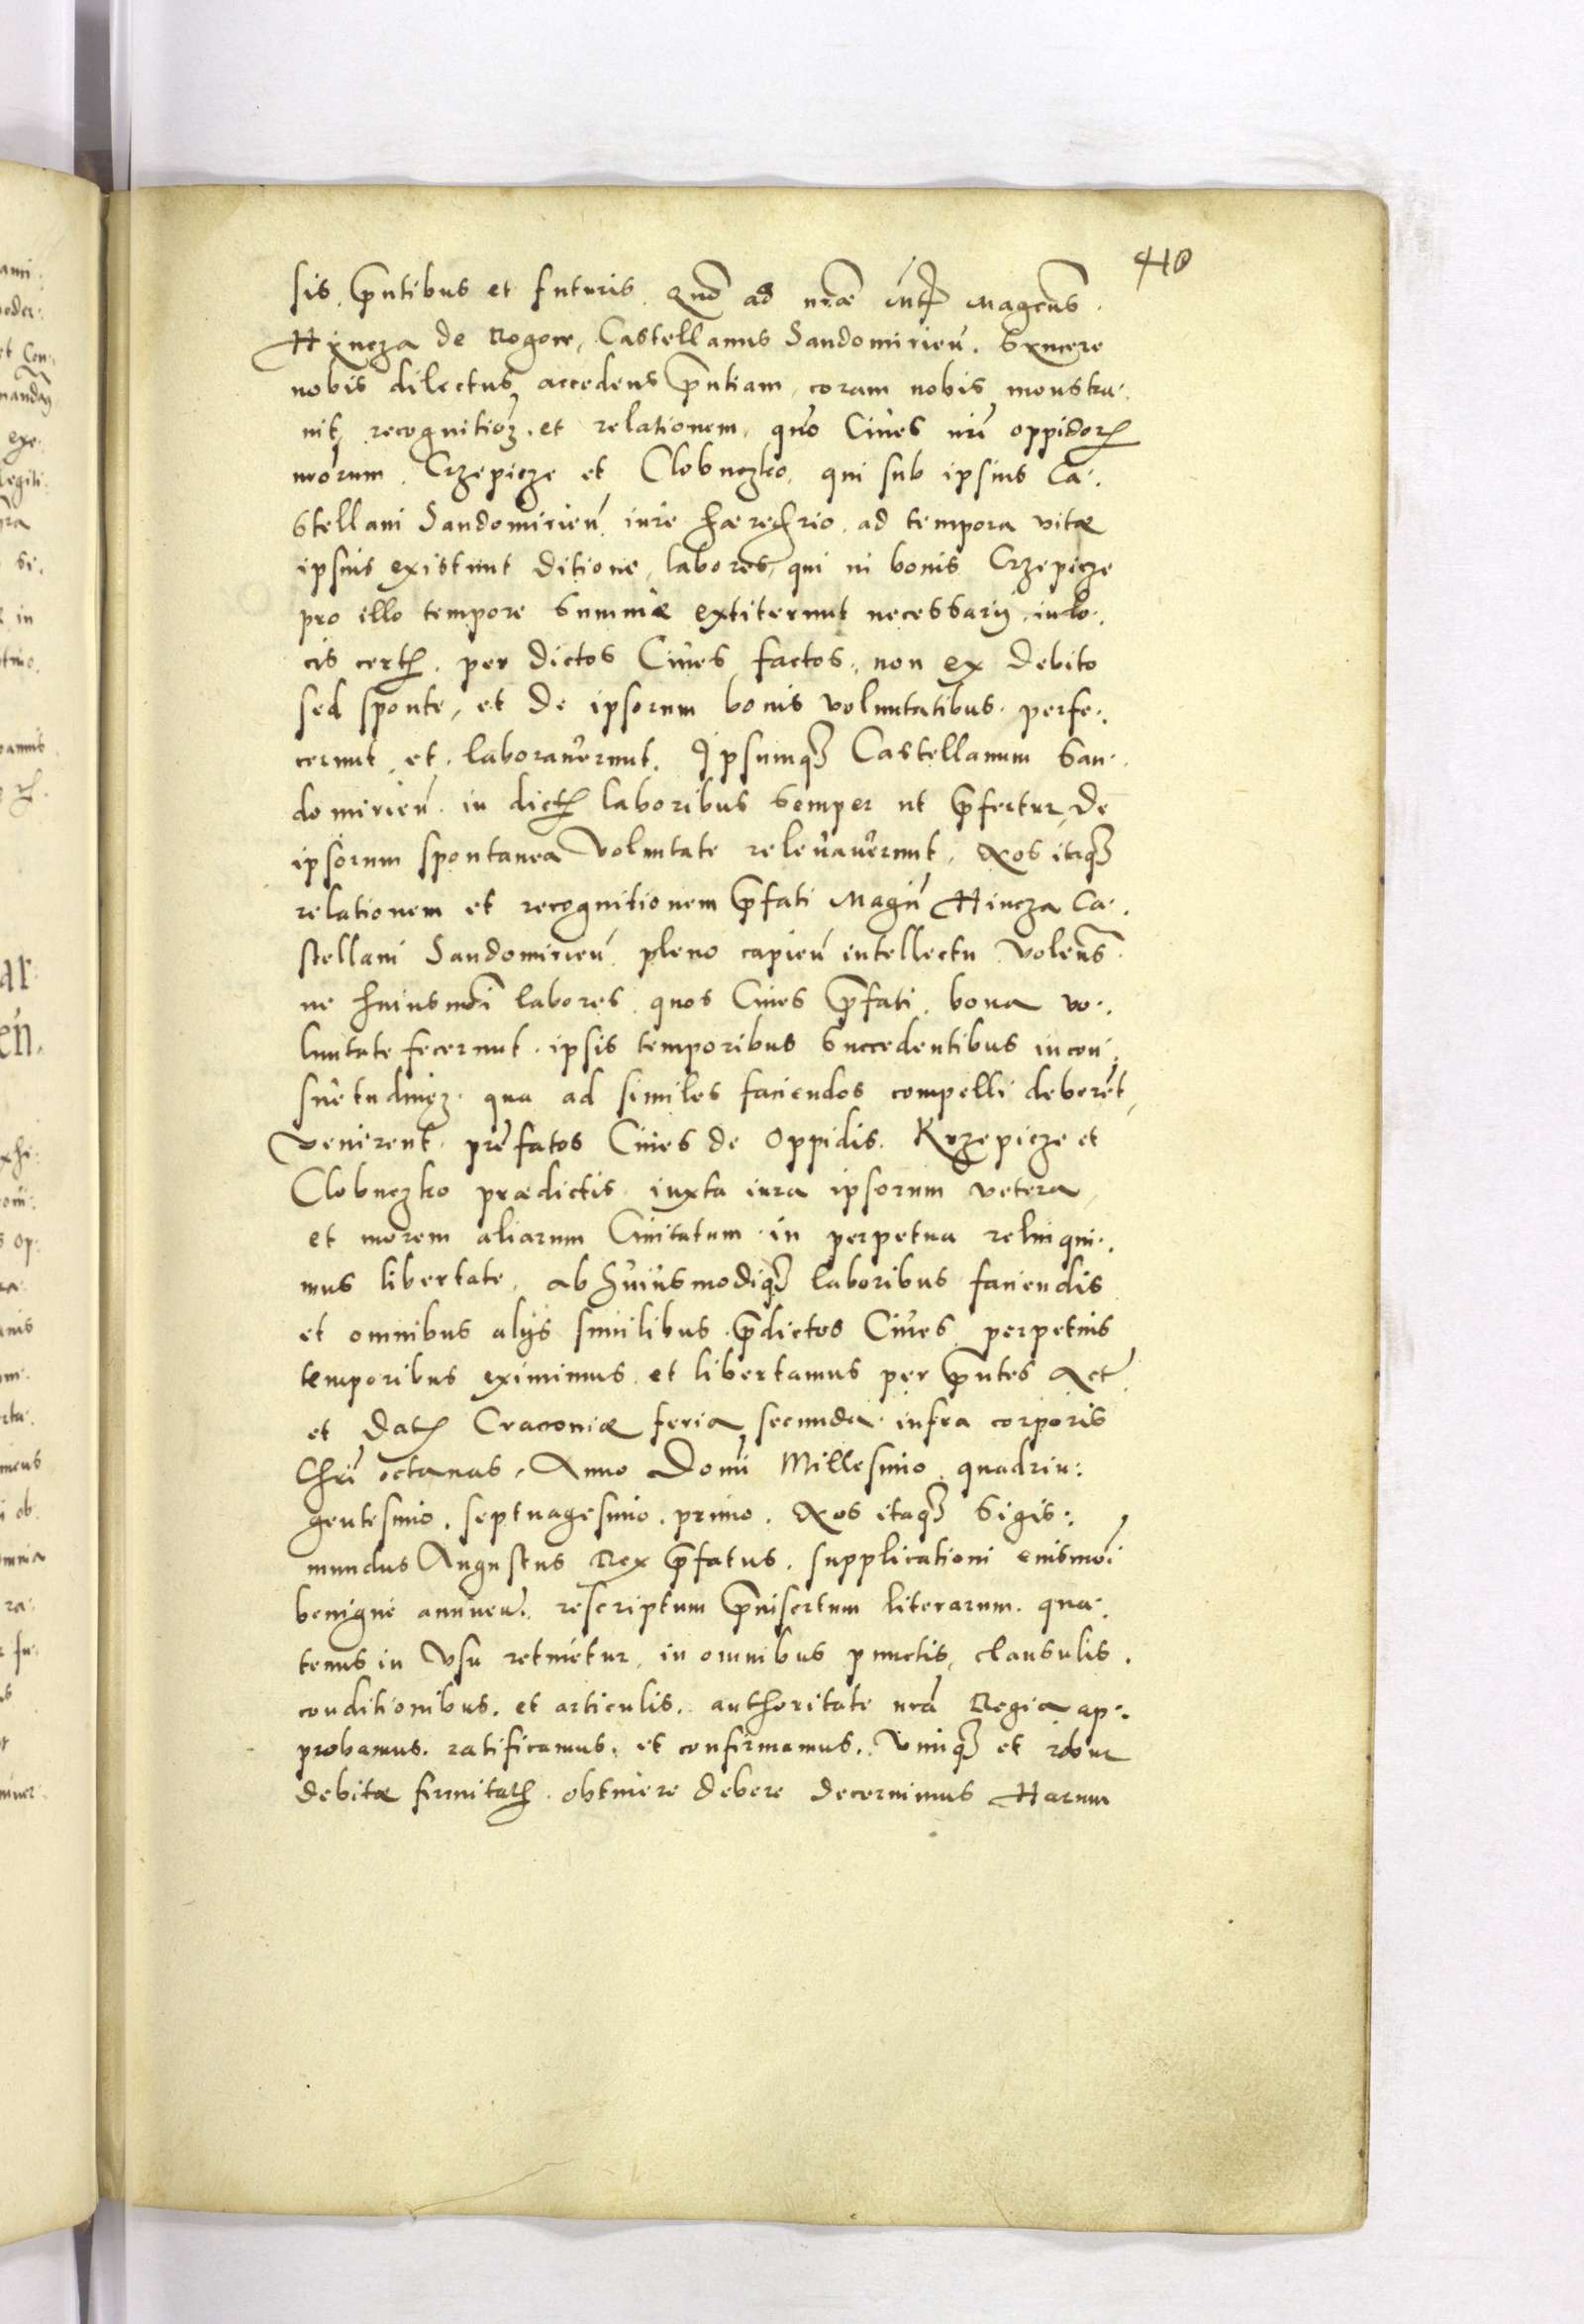 40
sis p̄ntibus et futuris. Quo ad nr̄ae Magcus.
Hyncza de Rogow, Castellanus Sandomirien̄. Syncere
nobis dilectus, accedens p̄ntiam, coram nobis monstra:
uit, recognitionē et relationem, quo Ciues nrī oppidorū
nr̄orum. Crzepicze et Clobuczko, qui sub ipsius Ca:
stellani Sandomirien̄ iure haeredrio, ad tempora vitae
ipsius existunt ditione, labores, qui in bonis Crzepicze
pro illo tempore summe extiterunt necessarij, in lo:
cis certis. per dictos Ciues factos, non ex debito
sed sponte, et de ipsorum bonis voluntatibus perfe:
cerunt et laborauerunt. Ipsumq3 Castellanum San:
domirien̄ in dictis laboribus semper ut p̄fertur, de
ipsorum spontanea voluntate releuauerunt. Nos itaq3
relationem et recognitionem p̄fati Magn̄ Hincza Ca:
stellani Sandomirien̄ pleno capien̄ intellectu volens
ne huiusmōi labores, quos Ciues p̄fati, bona vo:
luntate fecerunt ipsis temporibus succedentibus in con:
suetudinē, qua ad similes faciendos compelli deberēt,
venirent. prefatos Ciues de Oppidis Krzepicze et
Clobuczko praedictis iuxta iura ipsorum vetera,
et morem aliarum Ciuitatum in perpetua relinqui:
mus libertate, ab huiusmodiq3 laboribus faciendis
et omnibus alijs similibus p̄dictos Ciues perpetuis
temporibus eximimus et libertamus per p̄ntes Act
et Datis Cracouiae feria secunda infra corporis
Chrī octauas, Anno Domī Millesimo quadrin:
gentesimo, septuagesimo, primo. Nos itaq3 Sigis:
mundus Augustus Rex p̄fatus, supplicationi eiusmōi
benigne annuen̄. rescriptum p̄insertum literarum, qua:
tenus in vsu retinetur, in omnibus punctis, clausulis,
conditionibus, et articulis, authoritate nr̄a Regia ap:
probamus, ratificamus, et confirmamus. Vimq3 et robur
debitae firmitatis obtinere debere decernimus Harum